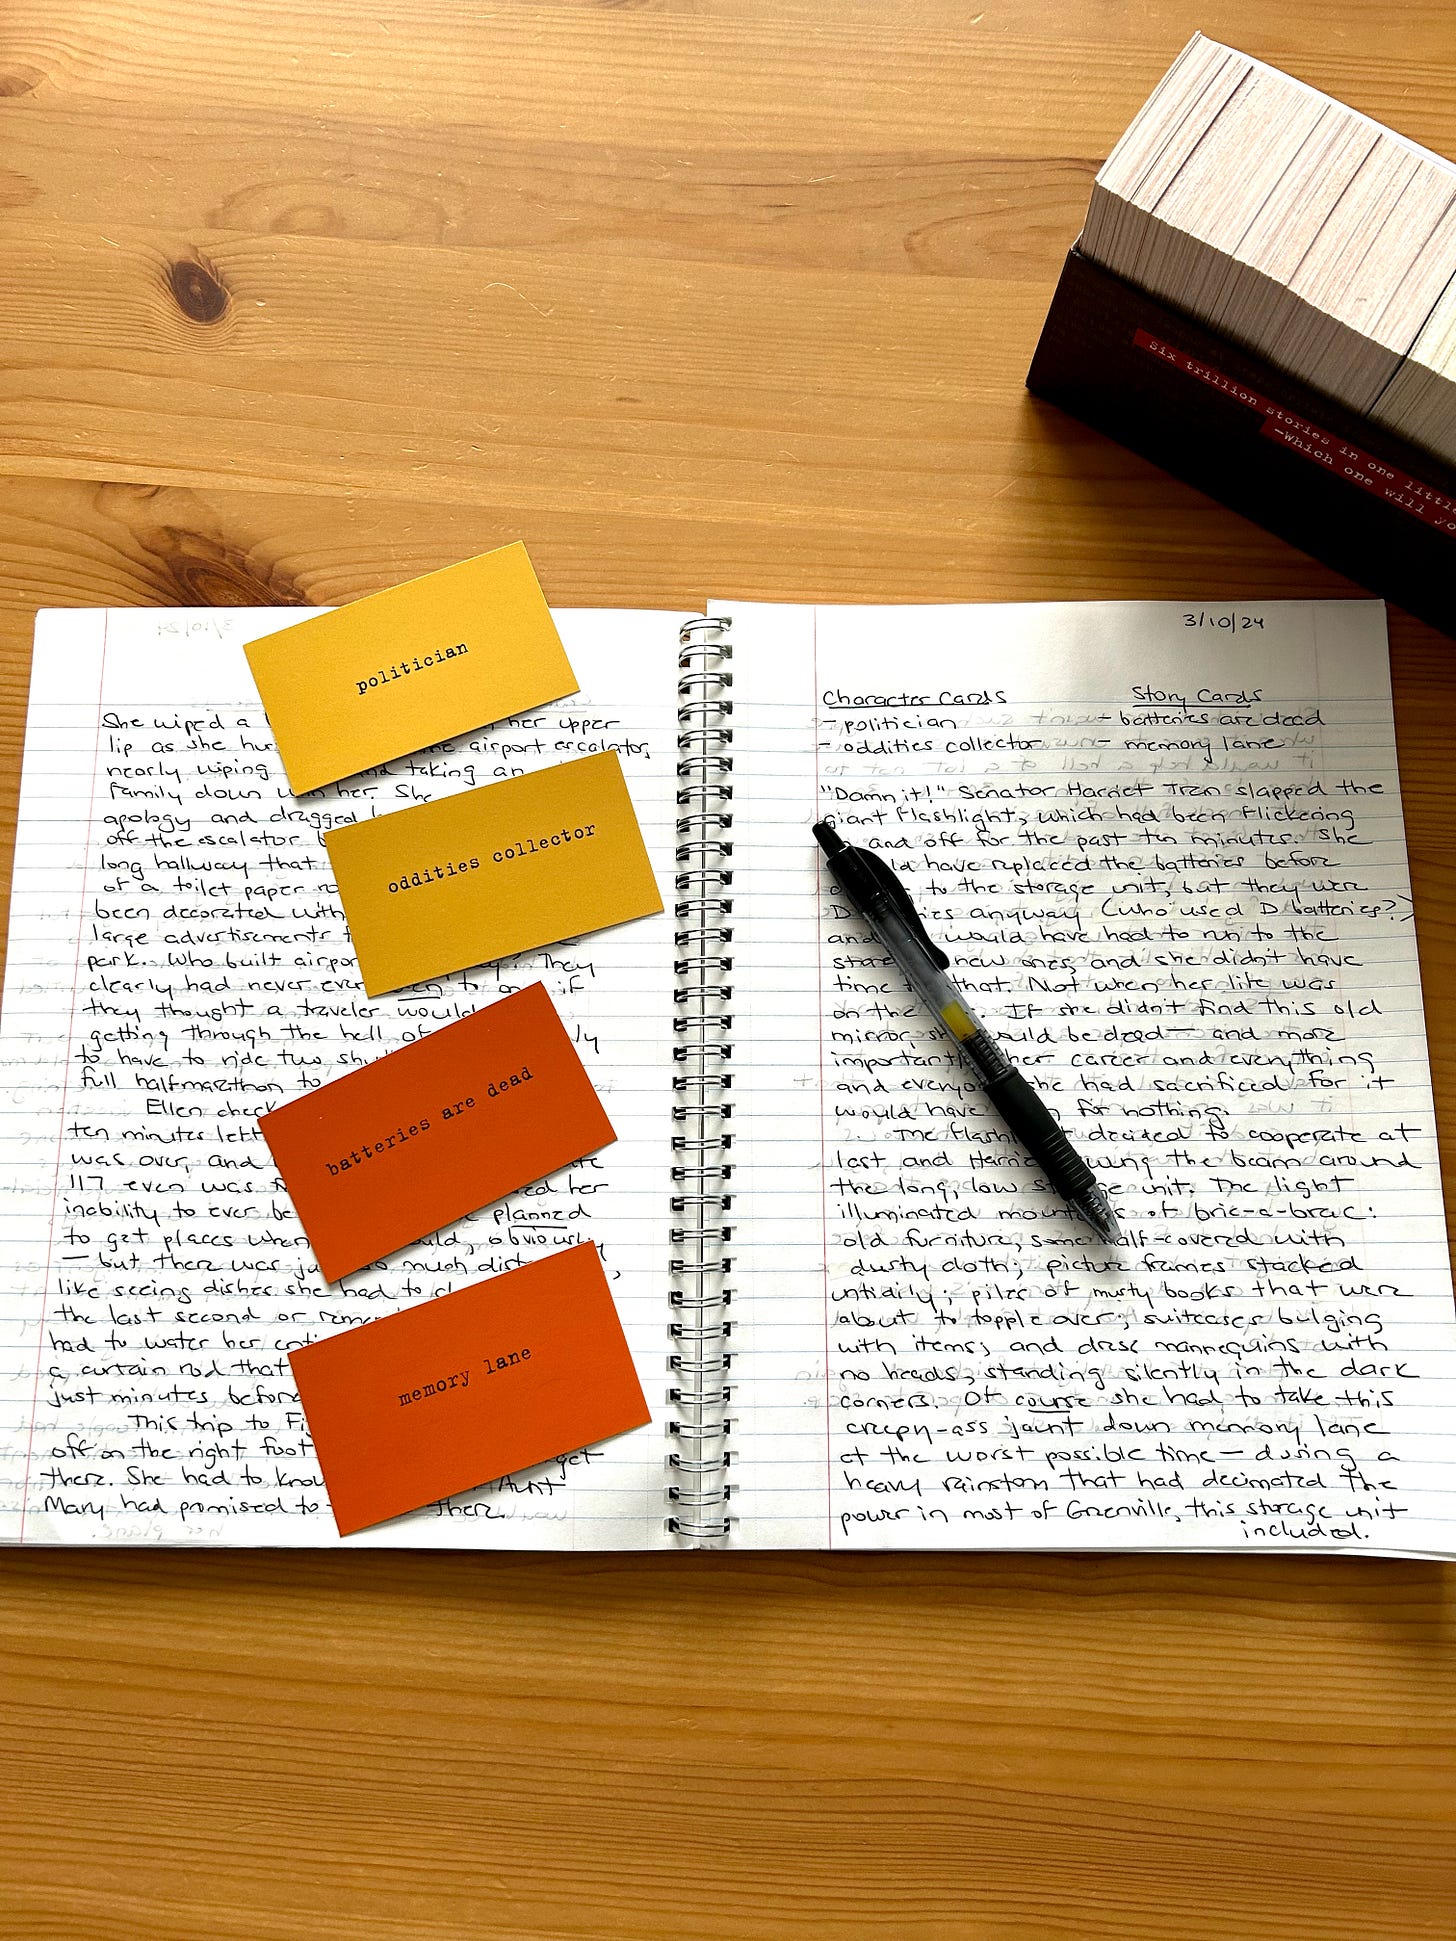 Six trillion stories in one little
—which one will
politician
oddities collector
batteries are dead
memory lane
She wiped a her upper
lip as she airport escalator,
nearly wiping taking an
family down her. She
apology and dragged
off the escalator
long hallway that
of a toilet paper
been decorated with
large advertisements
park. Who built They
clearly had never to if
they thought a traveler would
getting through the hell of
to have to ride two
full half marathon to
Ellen
ten minutes left
was over, and
117 even was her
inability to ever planned
to get places obviously
— but there was much
like seeing dishes she had to
the last second or
had to water her
a curtain rod that
just minutes before
This trip to
off on the right foot get
there. She had to Aunt
Mary had promised to there.
3/10/24
Character Cards Story Cards
- politician - batteries are dead
- oddities collector - memory lane
"Damn it!" Senator Harriet Tran slapped the
giant flashlight, which had been flickering
and off for the past ten minutes. She
have replaced the batteries before
to the storage unit, but they were
D anyway (who used D batteries?)
and would have had to run to the
store new ones, and she didn't have
time that. Not when her life was
on the If she didn't find this old
mirror, be dead — and more
her career and everything
and she had sacrificed for it
would have for nothing.
The decided to cooperate at
last and swung the beam around
the long, low unit. The light
illuminated of bric-a-brac:
old furniture, some half-covered with
dusty cloth; picture frames stacked
untidily; piles of musty books that were
about to topple over; suitcases bulging
with items; and dress mannequins with
no heads, standing silently in the dark
corners. Of course she had to take this
creepy-ass jaunt down memory lane
at the worst possible time — during a
heavy rainstorm that had decimated the
power in most of Greenville, this storage unit
included.